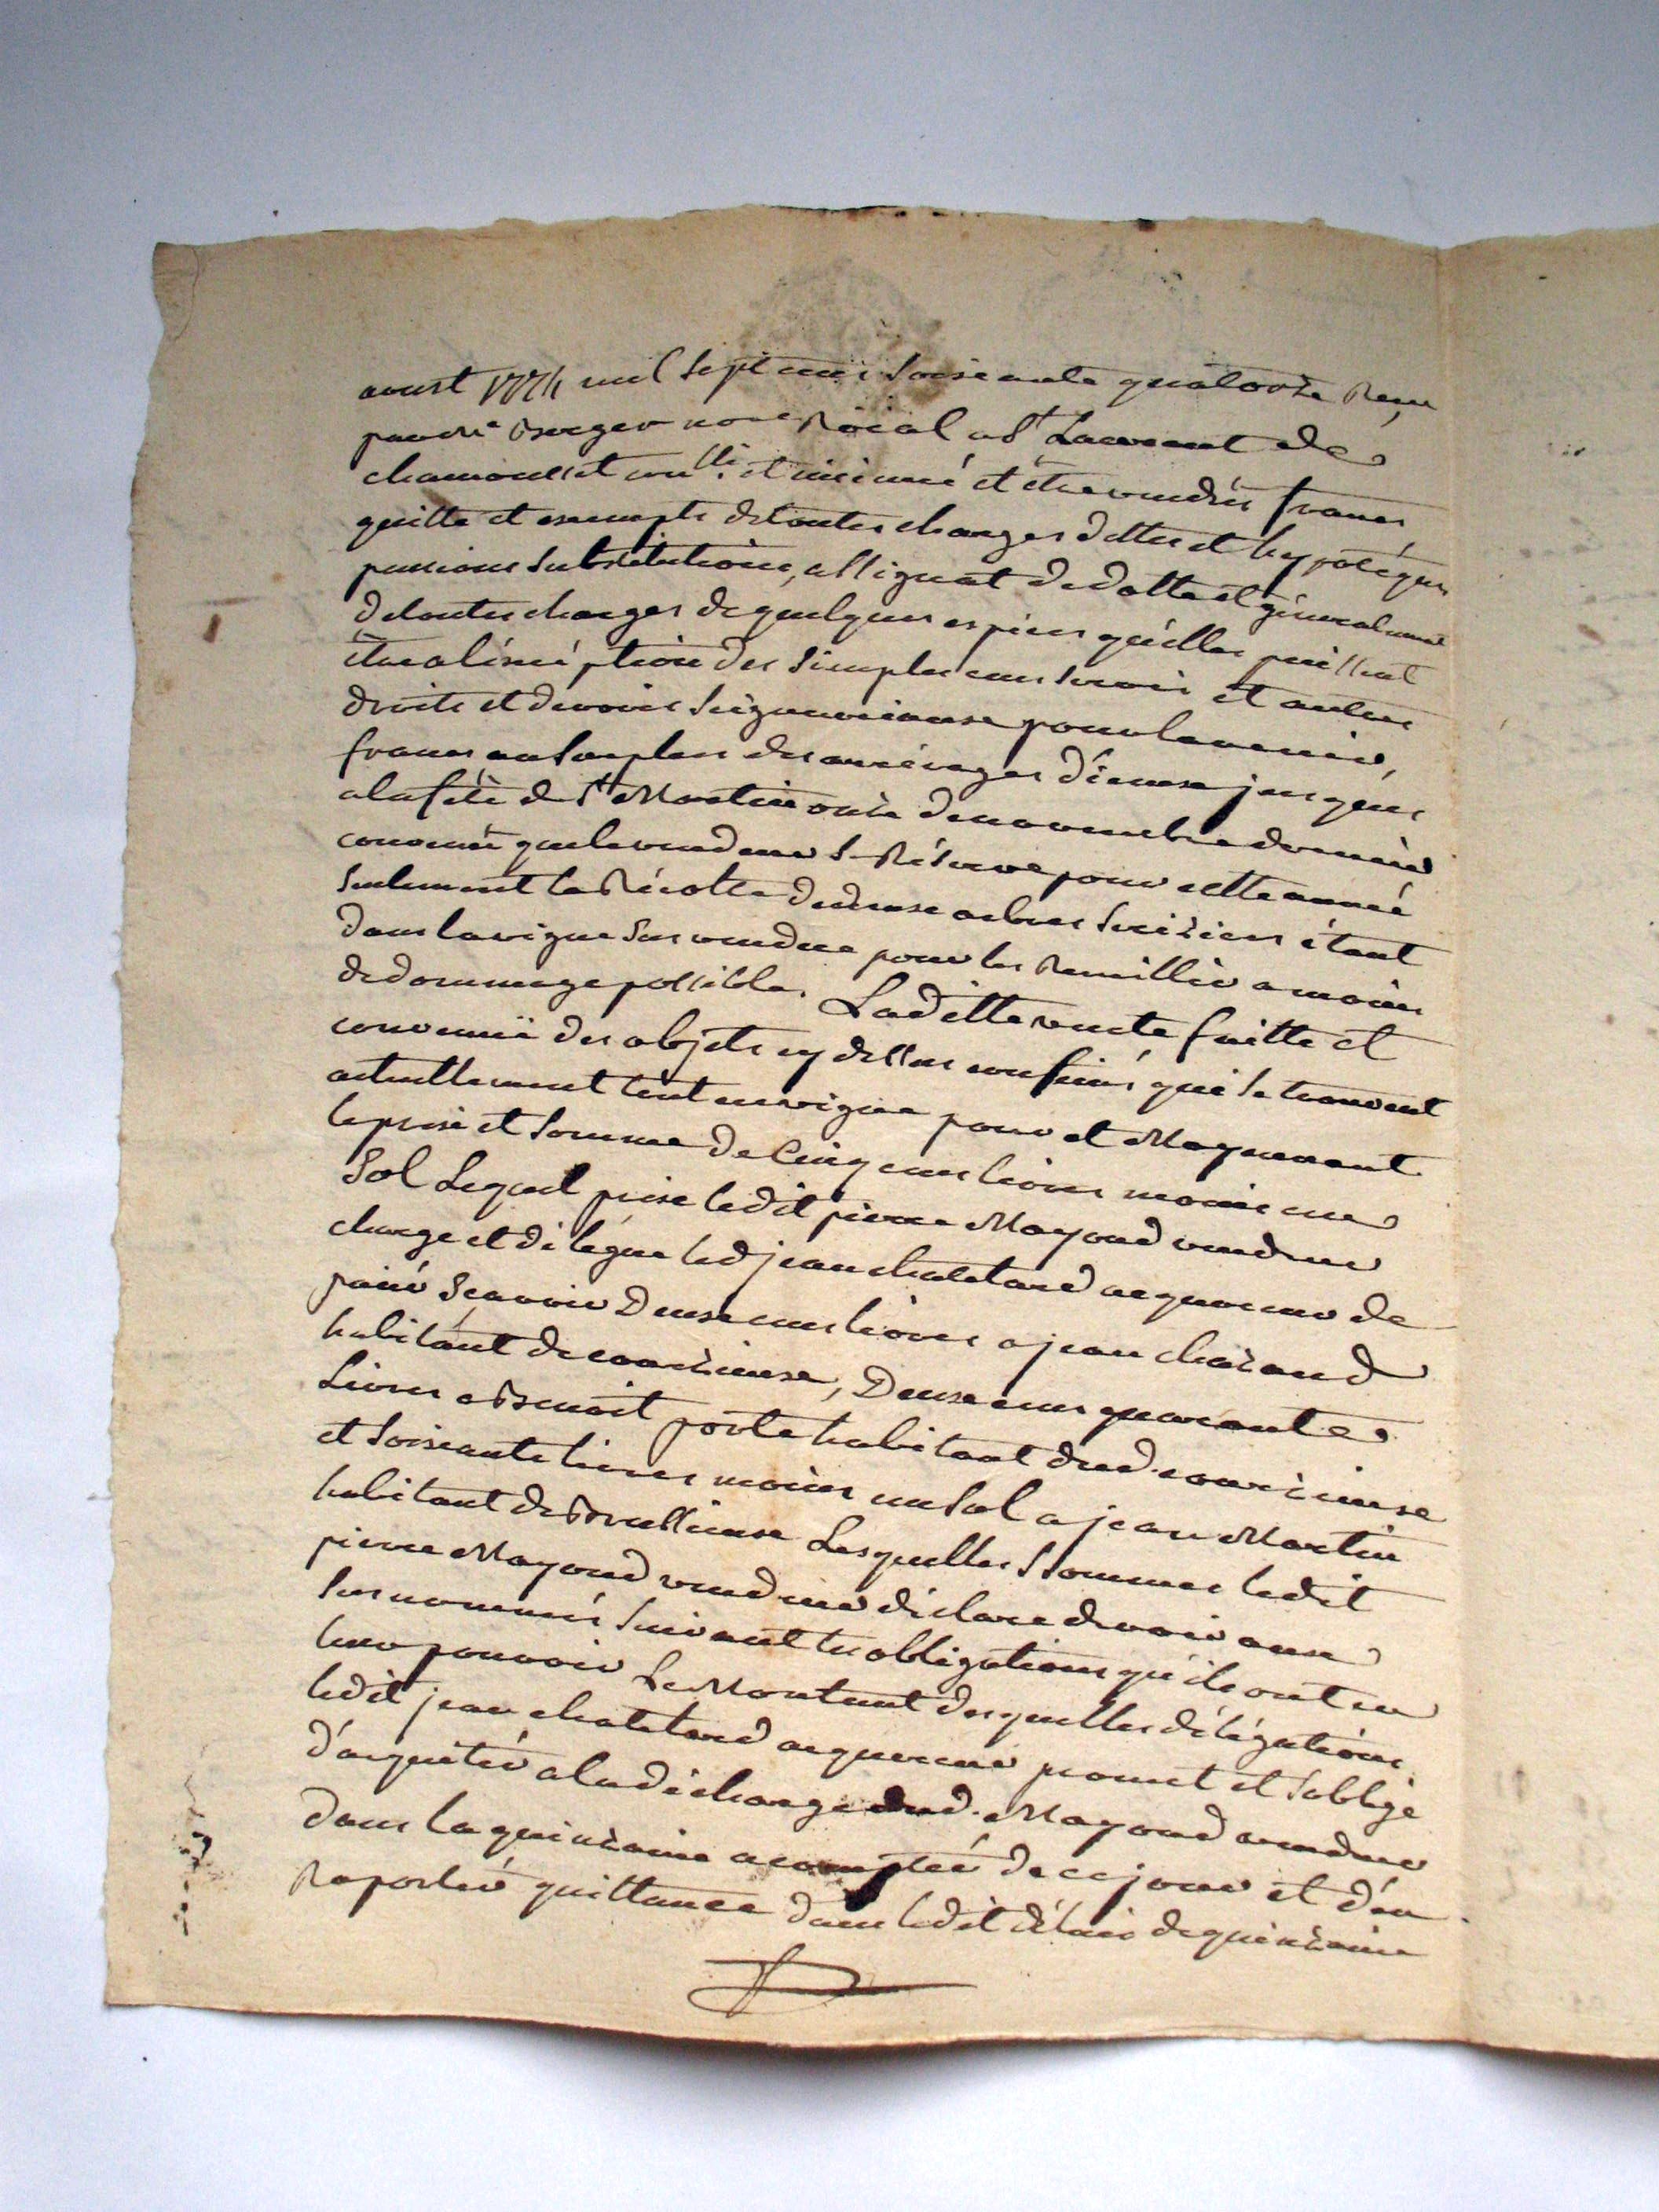 aoust 1774 mil sept cens soixante quatorze Reçu
par me Berger nore Roial a St Laurent de
chamousset conlle et insinué et être vendus francs
quitte et exempts de toutes charges dettes et hypotéques
pensions substitutions, assignat de dotte et généralement
de toutes charges de quelques espices qu'elles puissent
être al'éxéption des simples cens servis et autres
droits et devoirs seigneuriaux pour lavenir,
francs au surplus des arrérages d'iceux jusques
alafête de St Martin onze de novembre dernier
convenu que le vendeur se Réserve pour cette année
seulement la Récolte de deux arbres serisiers étant
dans la vigne sus vendue pour les Remillir a moins
de dommage possible. Laditte vente faitte et
convenuë des objets cy dessus confinés qui se trouvent
actuellement tout en vigne pour et Moyenant
le prix et somme de Cinq cens livres moins un
sol Lequel prix ledit pierre Mayoud vendeur
charge et délégue led jean chatelard acquereur de
paier sçavoir Deux cens livres a jean chazaud
habitant de courzieux, Deux cens quarante
Livres a Benoit porte habitant dud. courzieux
et soixante livres moins un sol a jean Martin
habitant de Brussieux Lesquelles sommes ledit
pierre Mayoud vendeur déclare devoir aux
sus nommés suivant les obligations qu'ils ont en
leur pouvoir Le Montant desquelles délégations
ledit jean chatelard acquereur promet et soblige
d'acquitér a la décharge dud. Mayoud vendeur
dans la quinzaine a comptér de ce jour et d'en
Raportér quittance dans ledit délais de quinzaine